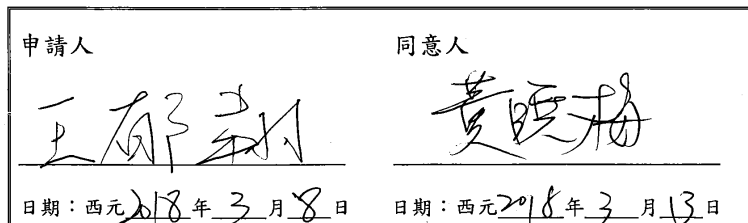 申請人
王郁翔
日期：西元2018年3月8日
同意人
黃暎梅
日期：西元2018年3月13日